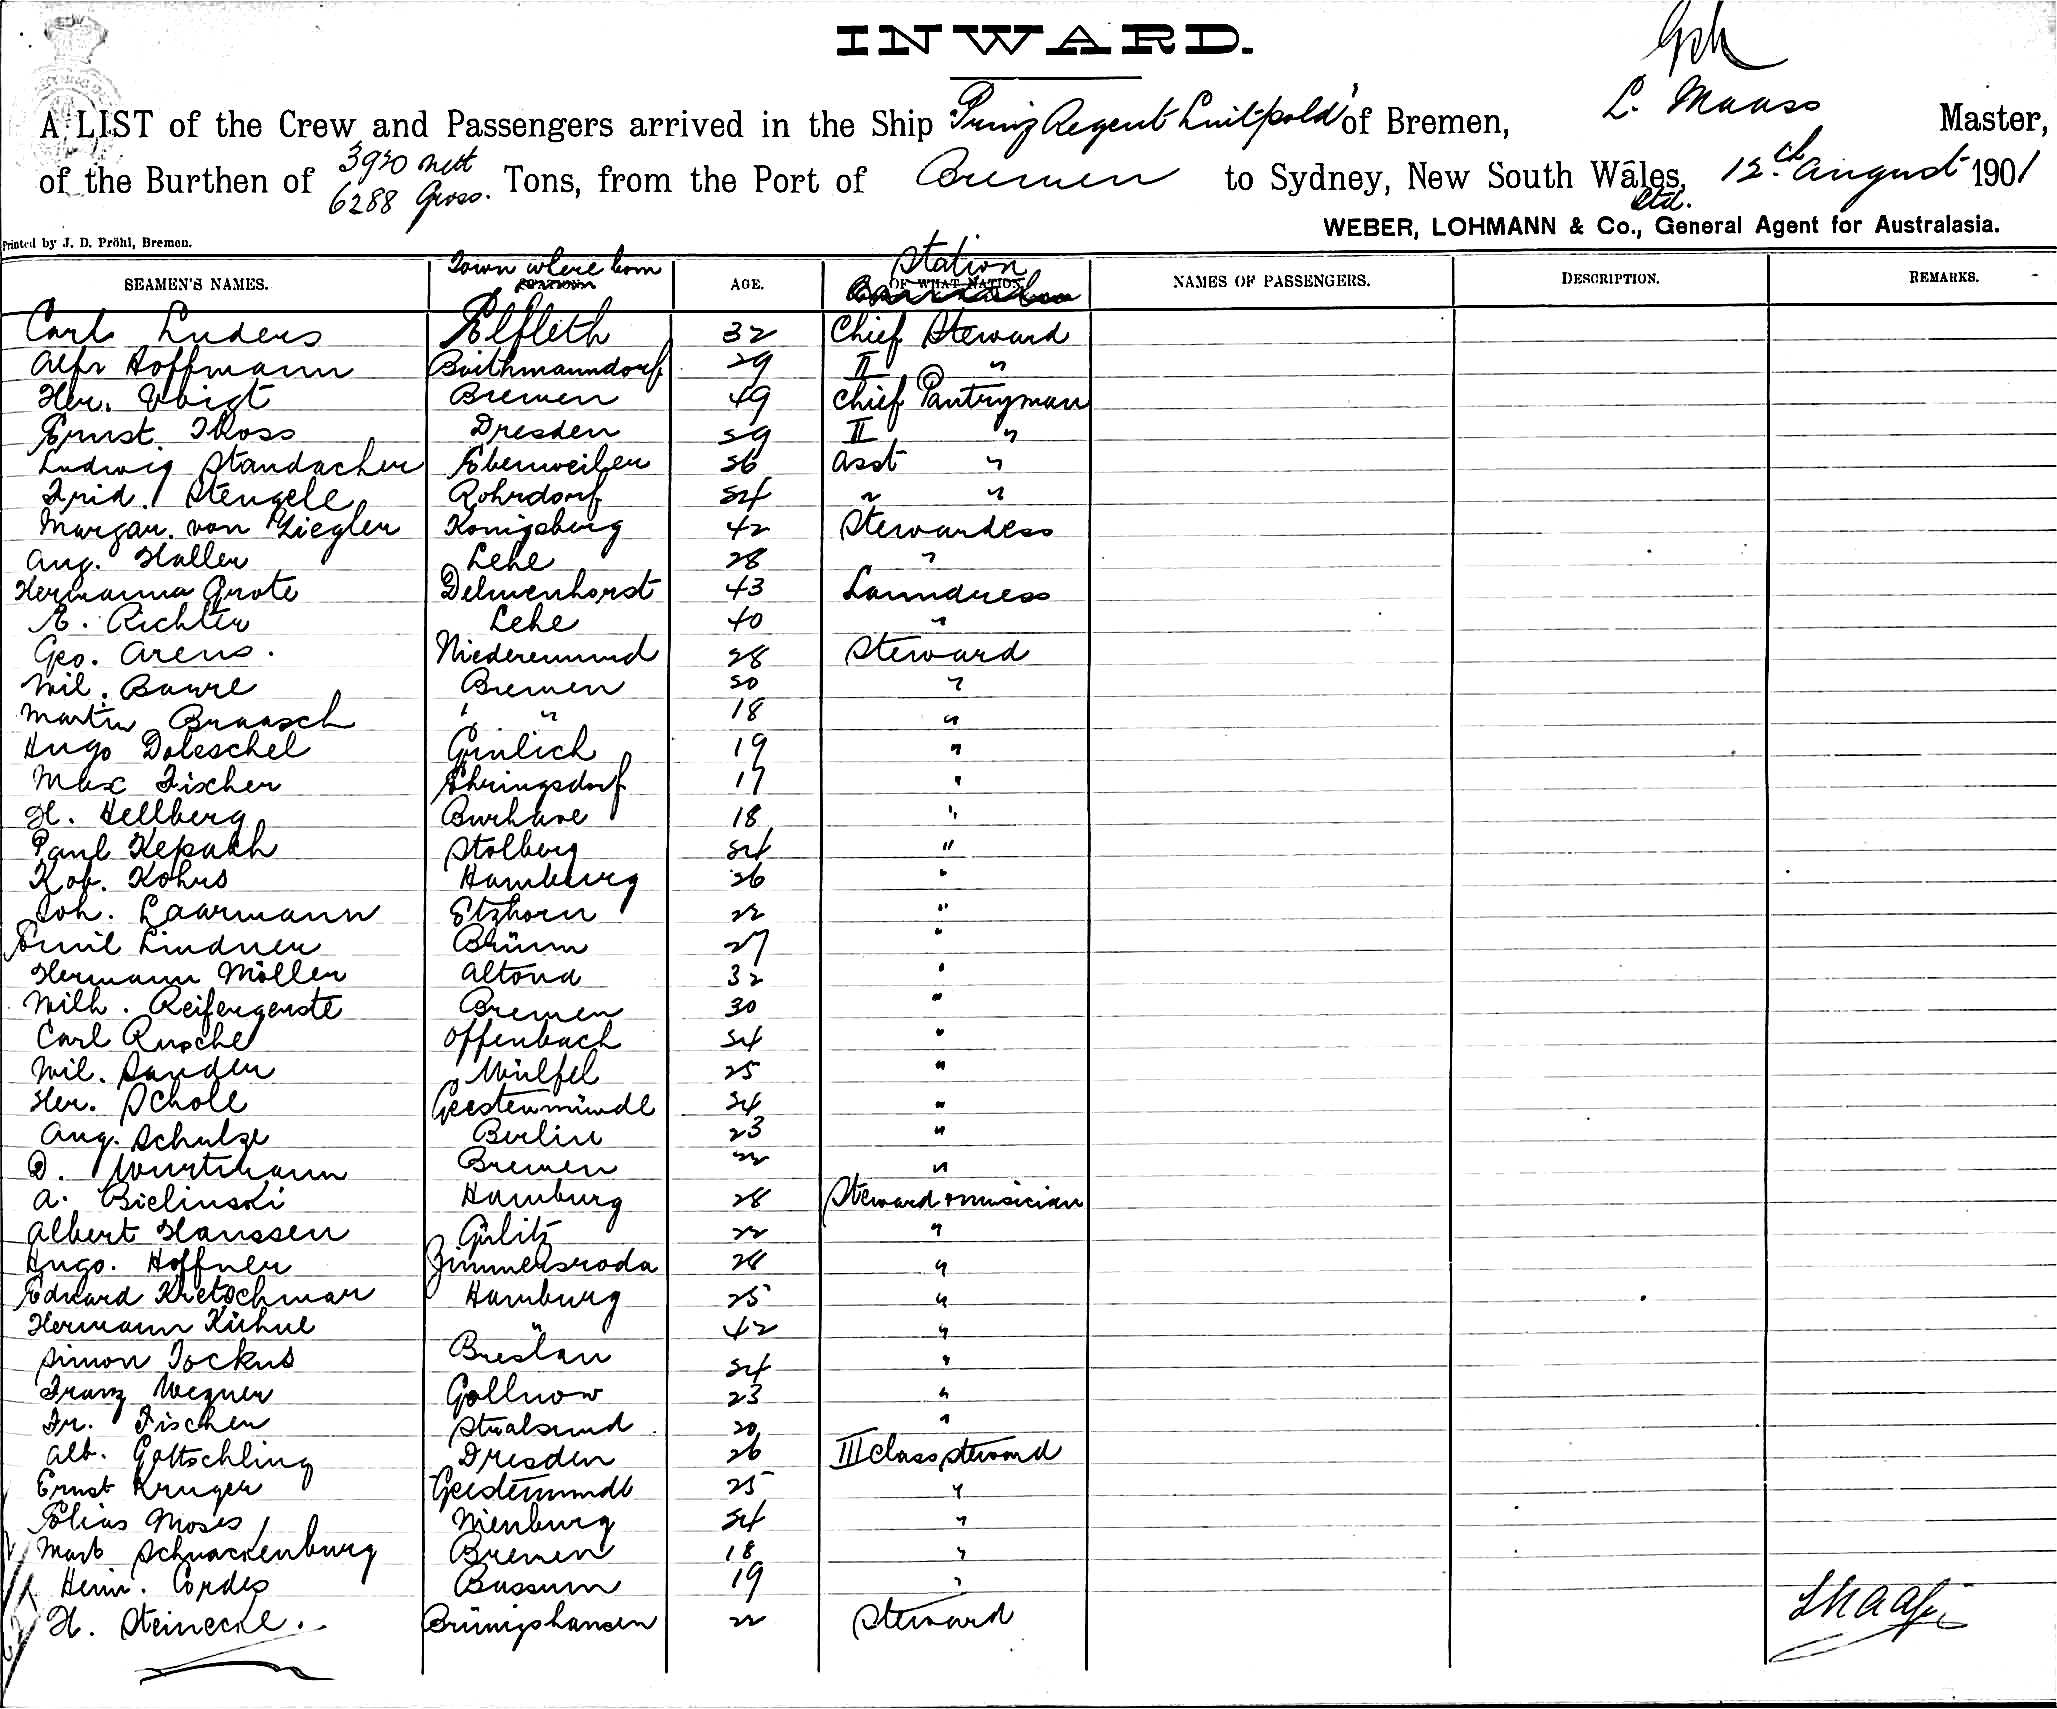 Gch
INWARD.
A LIST of the Crew and Passengers arrived in the Ship Prinz Regent Luitpold of Bremen, L. Maass Master,
of the Burthen of 3920 nett 6288 Gross. Tons, from the Port of Bremen to Sydney, New South Wales, 12th August 1901
Ltd.
WEBER, LOHMANN & Co., General Agent for Australasia.
Printed by J. D. Pröhl, Bremen.
SEAMEN'S NAMES. Town where born STATION AGE. Station OF WHAT NATION NAMES OF PASSENGERS. DESCRIPTION. REMARKS.
Carl Luders Elfleth 32 Chief Steward
Alfr Hoffmann Boithmanndorf 29 II "
Her. Voigt Bremen 49 Chief Pantryman
Ernst Dresden 29 II "
Ludwig Standacher Ebenweiler 26 Asst "
Frid. Stengele Rohrdorf 24 " "
Margar. von Ziegler Konigsberg 42 Stewardess
Aug. Haller Lehe 28 "
Hermanna Grote Delmenhorst 43 Laundress
E. Richter Lehe 40 "
Geo. Arens. Niederemund 28 Steward
Wil. Baure Bremen 20 "
Martin Braasch " " 18 "
Hugo Doleschel Grulich 19 "
Max Fischer Ehringsdorf 17 "
H. Hellberg Burhave 18 "
Paul Kepakh Stolberg 24 "
Rob. Kohrs Hamburg 26 "
Joh. Laarmann Etzhorn 22 "
Emil Lindner Brünn 27 "
Hermann Möller Altona 32 "
Wilh. Reifergerste Bremen 30 "
Carl Rusche Offenbach 24 "
Wil. Sander Wülfel 25 "
Her. Scholl Geestenmünde 24 "
Aug. Schulze Berlin 23 "
D. Wurtmann Bremen 22 "
A. Bielinski Hamburg 28 Steward & musician
Albert Hanssen Görlitz 22 "
Hugo. Hoffner Zimmersroda 24 "
Eduard Kretschmar Hamburg 25 "
Hermann Kühne " 42 "
Simon Jockus Breslau 24 "
Franz Wegner Gollnow 23 "
Fr. Fischer Stralsund 20 "
Alb. Gottschling Dresden 26 III class steward
Ernst Kruger Geestemünde 25 "
Elias Moses Nienburg 24 "
Mart Schnackenburg Bremen 18 "
Heinr. Cordes Bassum 19 "
H. Steinecke. Brünigshausen 22 Steward